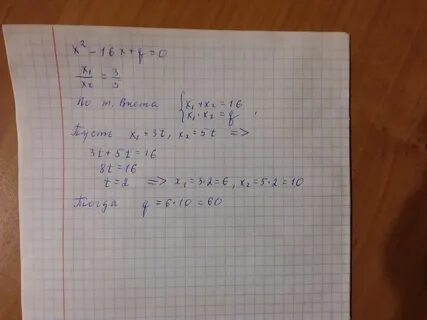 x² - 16x + q = 0
x₁/x₂ = 3/5
По т. Виета { x₁ + x₂ = 16
x₁ · x₂ = q ,
Пусть x₁ = 3t, x₂ = 5t =>
3t + 5t = 16
8t = 16
t = 2 => x₁ = 3·2 = 6, x₂ = 5·2 = 10
Тогда q = 6·10 = 60